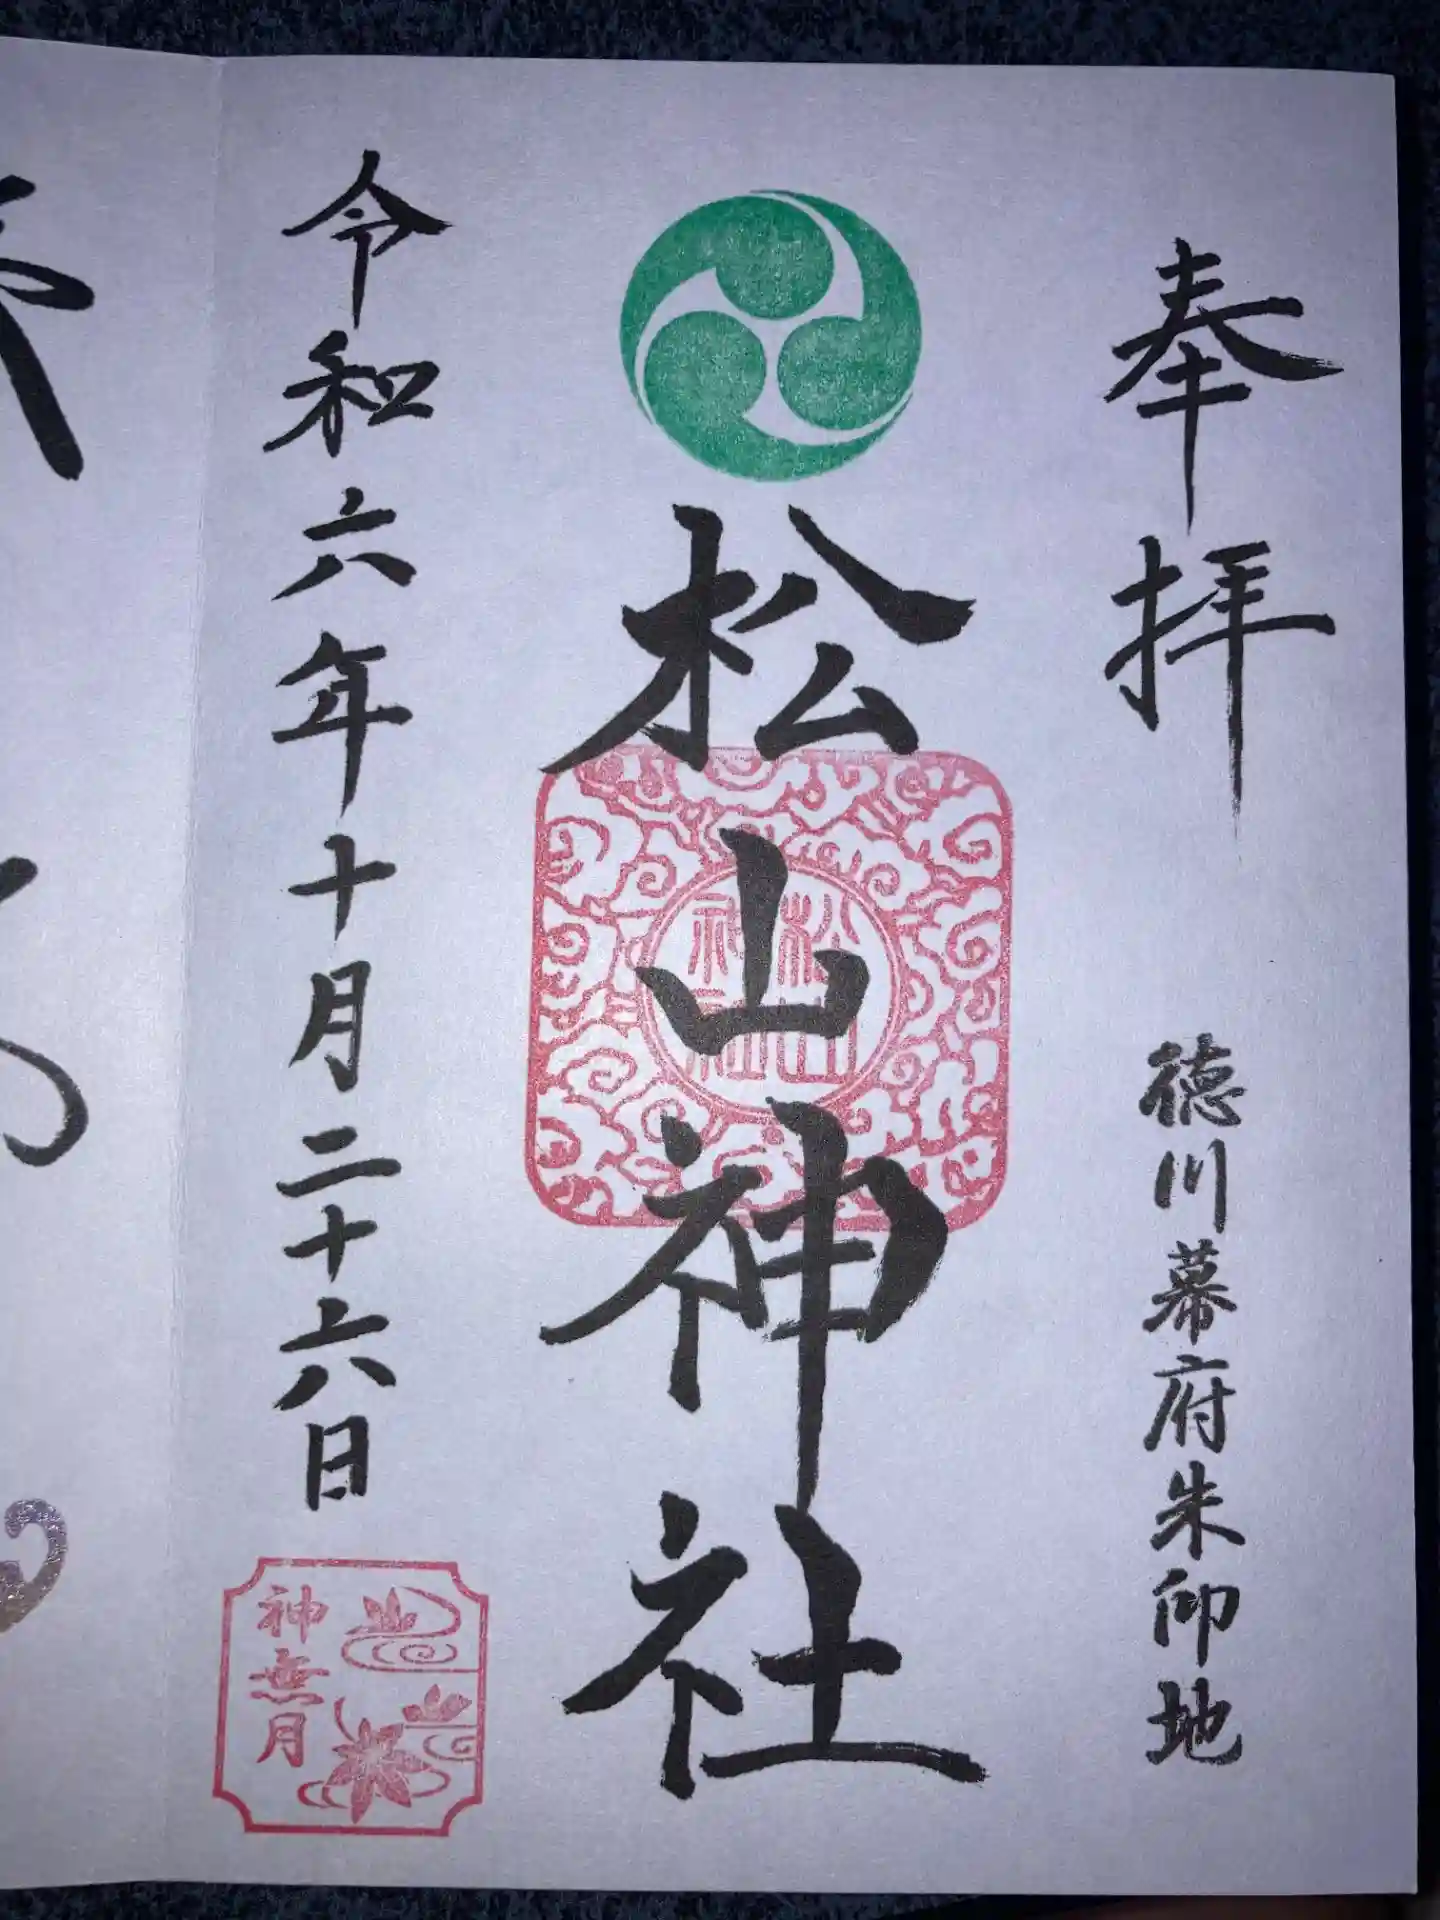 奉拝
徳川幕府朱印地
松山神社
松山
神社
令和六年十月二十六日
神無月